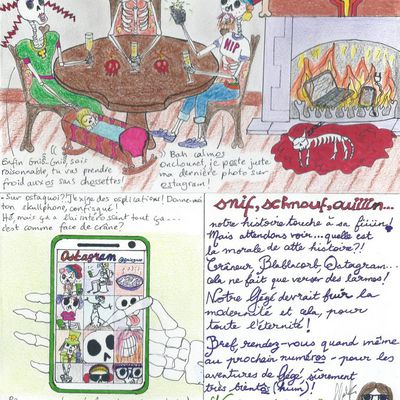 R.I.P
Enfin Gnik-Gnik, sois
raisonnable, tu vas prendre
froid aux os sans chossettes!
Bah calmos
Onclounet, je poste juste
ma dernière photo sur
ostagram!
- Sur ostaquoi?? J'exige des explications! Donne-moi
ton skullphone, confisqué!
Hô, mais ça a l'air intéressant tout ça...
c'est comme face de crâne?
Ostagram
snif, schnouf, ouiiiiin...
notre histoire touche à sa fiiiiin!
Mais attendons voir... quelle est
la morale de cette histoire?!
Crâneur, Blablacorb, Ostagram...
cela ne fait que verser des larmes!
Notre Gégé devrait fuir la
modernité et cela, pour
toute l'éternité!
Bref, rendez-vous quand même
au prochain numéros - pour les
aventures de Gégé, sûrement
très bientôt (hum)!